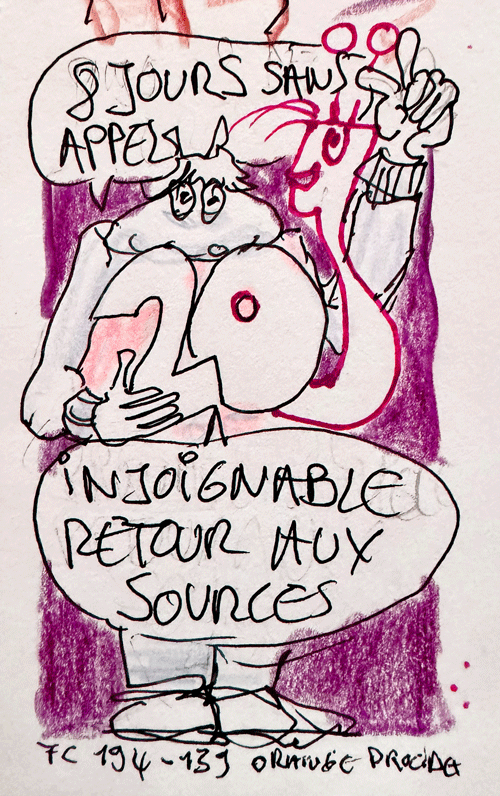 8 JOURS SANS
APPELS
20
INJOIGNABLE
RETOUR AUX
SOURCES
FC 194-139 ORANGE